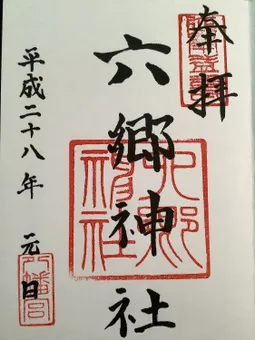 奉拝
六郷神社
六郷神社
平成二十八年 元日
八幡宮